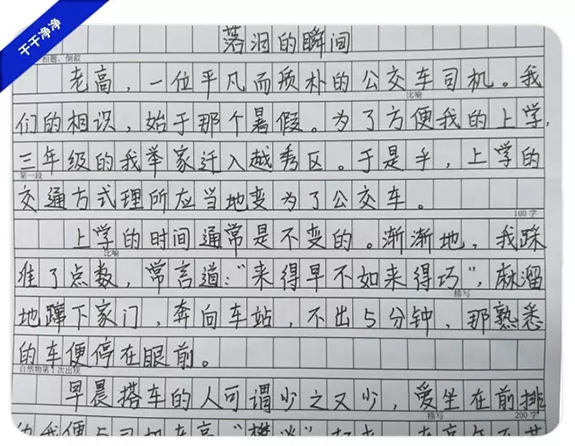 干干净净
落泪的瞬间
扣题、倒叙
老高，一位平凡而质朴的公交车司机。我
比喻
们的相识，始于那个暑假。为了方便我的上学，
三年级的我举家迁入越秀区。于是乎，上学的
第一段
交通方式理所应当地变为了公交车。
100字
上学的时间通常是不变的。渐渐地，我踩
比喻
准了点数，常言道："来得早不如来得巧"，麻溜
描写
地蹿下家门，奔向车站，不出5分钟，那熟悉
的车便停在眼前。
自然物第1次出现
早晨搭车的人可谓少之又少，爱坐在前排
描写
200字
的我便与司机老高